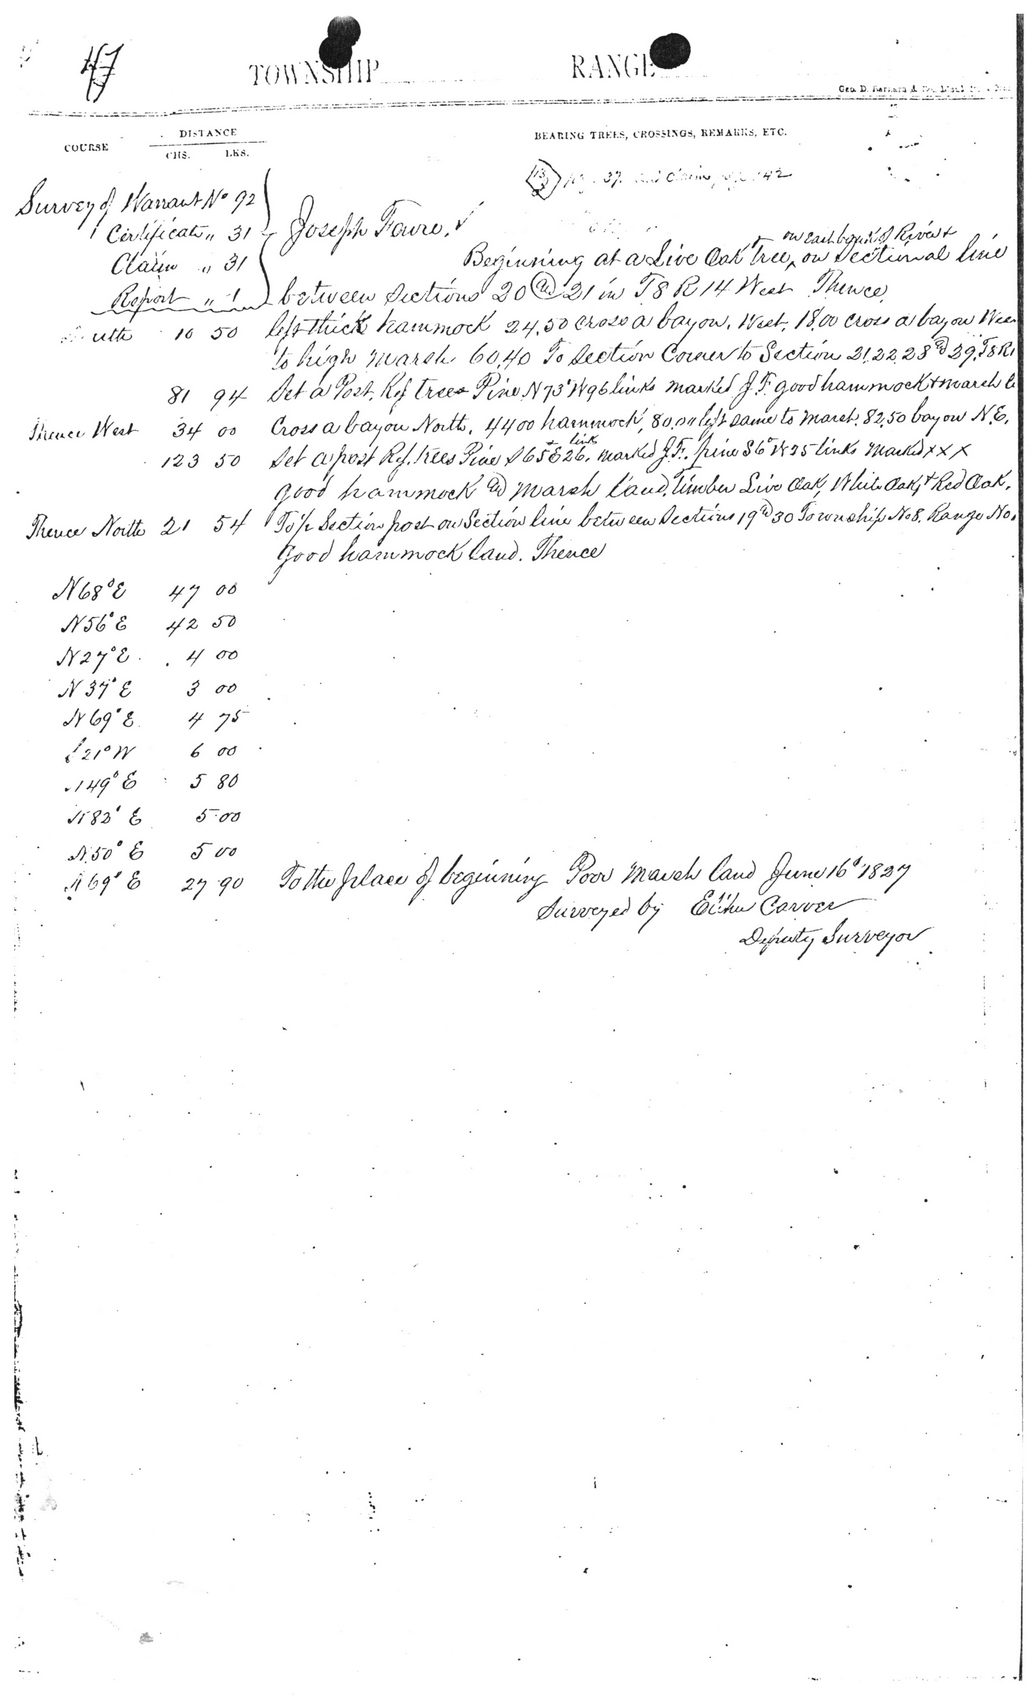 47
TOWNSHIP RANGE
Geo. D. Barnard & Co.
DISTANCE
COURSE CHS. LKS. BEARING TREES, CROSSINGS, REMARKS, ETC.
37 Claim 42
Survey of Warrant No 92
Certificate " 31 Joseph Favre.
on East bank of River
Claim " 31 Beginning at a Live Oak tree, on Sectional line
Report " 1 between Sections 20 & 21 in T8 R14 West Thence
10 50 left thick hammock 24,50 cross a bayou, West, 18,00 cross a bayou
to high marsh 60,40 To Section Corner to Section 21,22,28 & 29, T8
81 94 Set a Post, Ref trees Pine N73°W 96 links marked J.F. good hammock & marsh
Thence West 34 00 Cross a bayou North, 4400 hammock, 80,00 left same to marsh, 82,50 bayou N.E.
link
123 50 Set a post Ref. trees Pine S65°E 26, marked J.F. pine S6°W 25 links marked x x x
good hammock & marsh land, timber Live Oak, White Oak, & Red Oak.
Thence North 21 54 To 1/2 Section post on Section line between Sections 19 & 30 Township No 8. Range No.
Good hammock land. Thence
N68°E 47 00
N56°E 42 50
N27°E 4 00
N37°E 3 00
N69°E 4 75
21°W 6 00
49°E 5 80
N83°E 5 00
N.50°E 5 00
N69°E 27 90 To the place of beginning Poor marsh land June 16° 1827
Surveyed by Elihu Carver
Deputy Surveyor